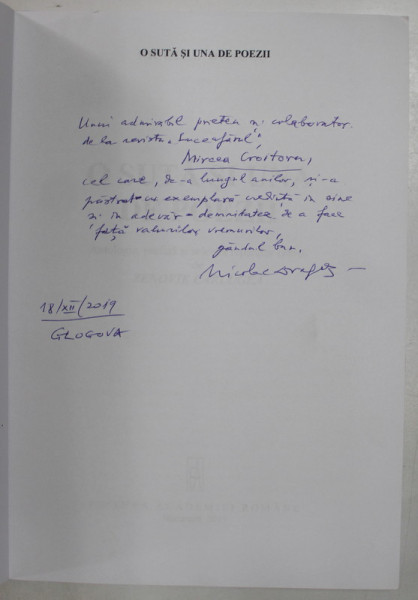 O SUTĂ ȘI UNA DE POEZII
Unui admirabil prieten și colaborator
de la revista „Luceafărul",
Mircea Croitoru,
cel care, de-a lungul anilor, și-a
păstrat cu exemplară credință în sine
și în adevăr demnitatea de a face
față valurilor vremurilor,
gândul bun,
Nicolae Dragoș
18/XII/2019
GLOGOVA